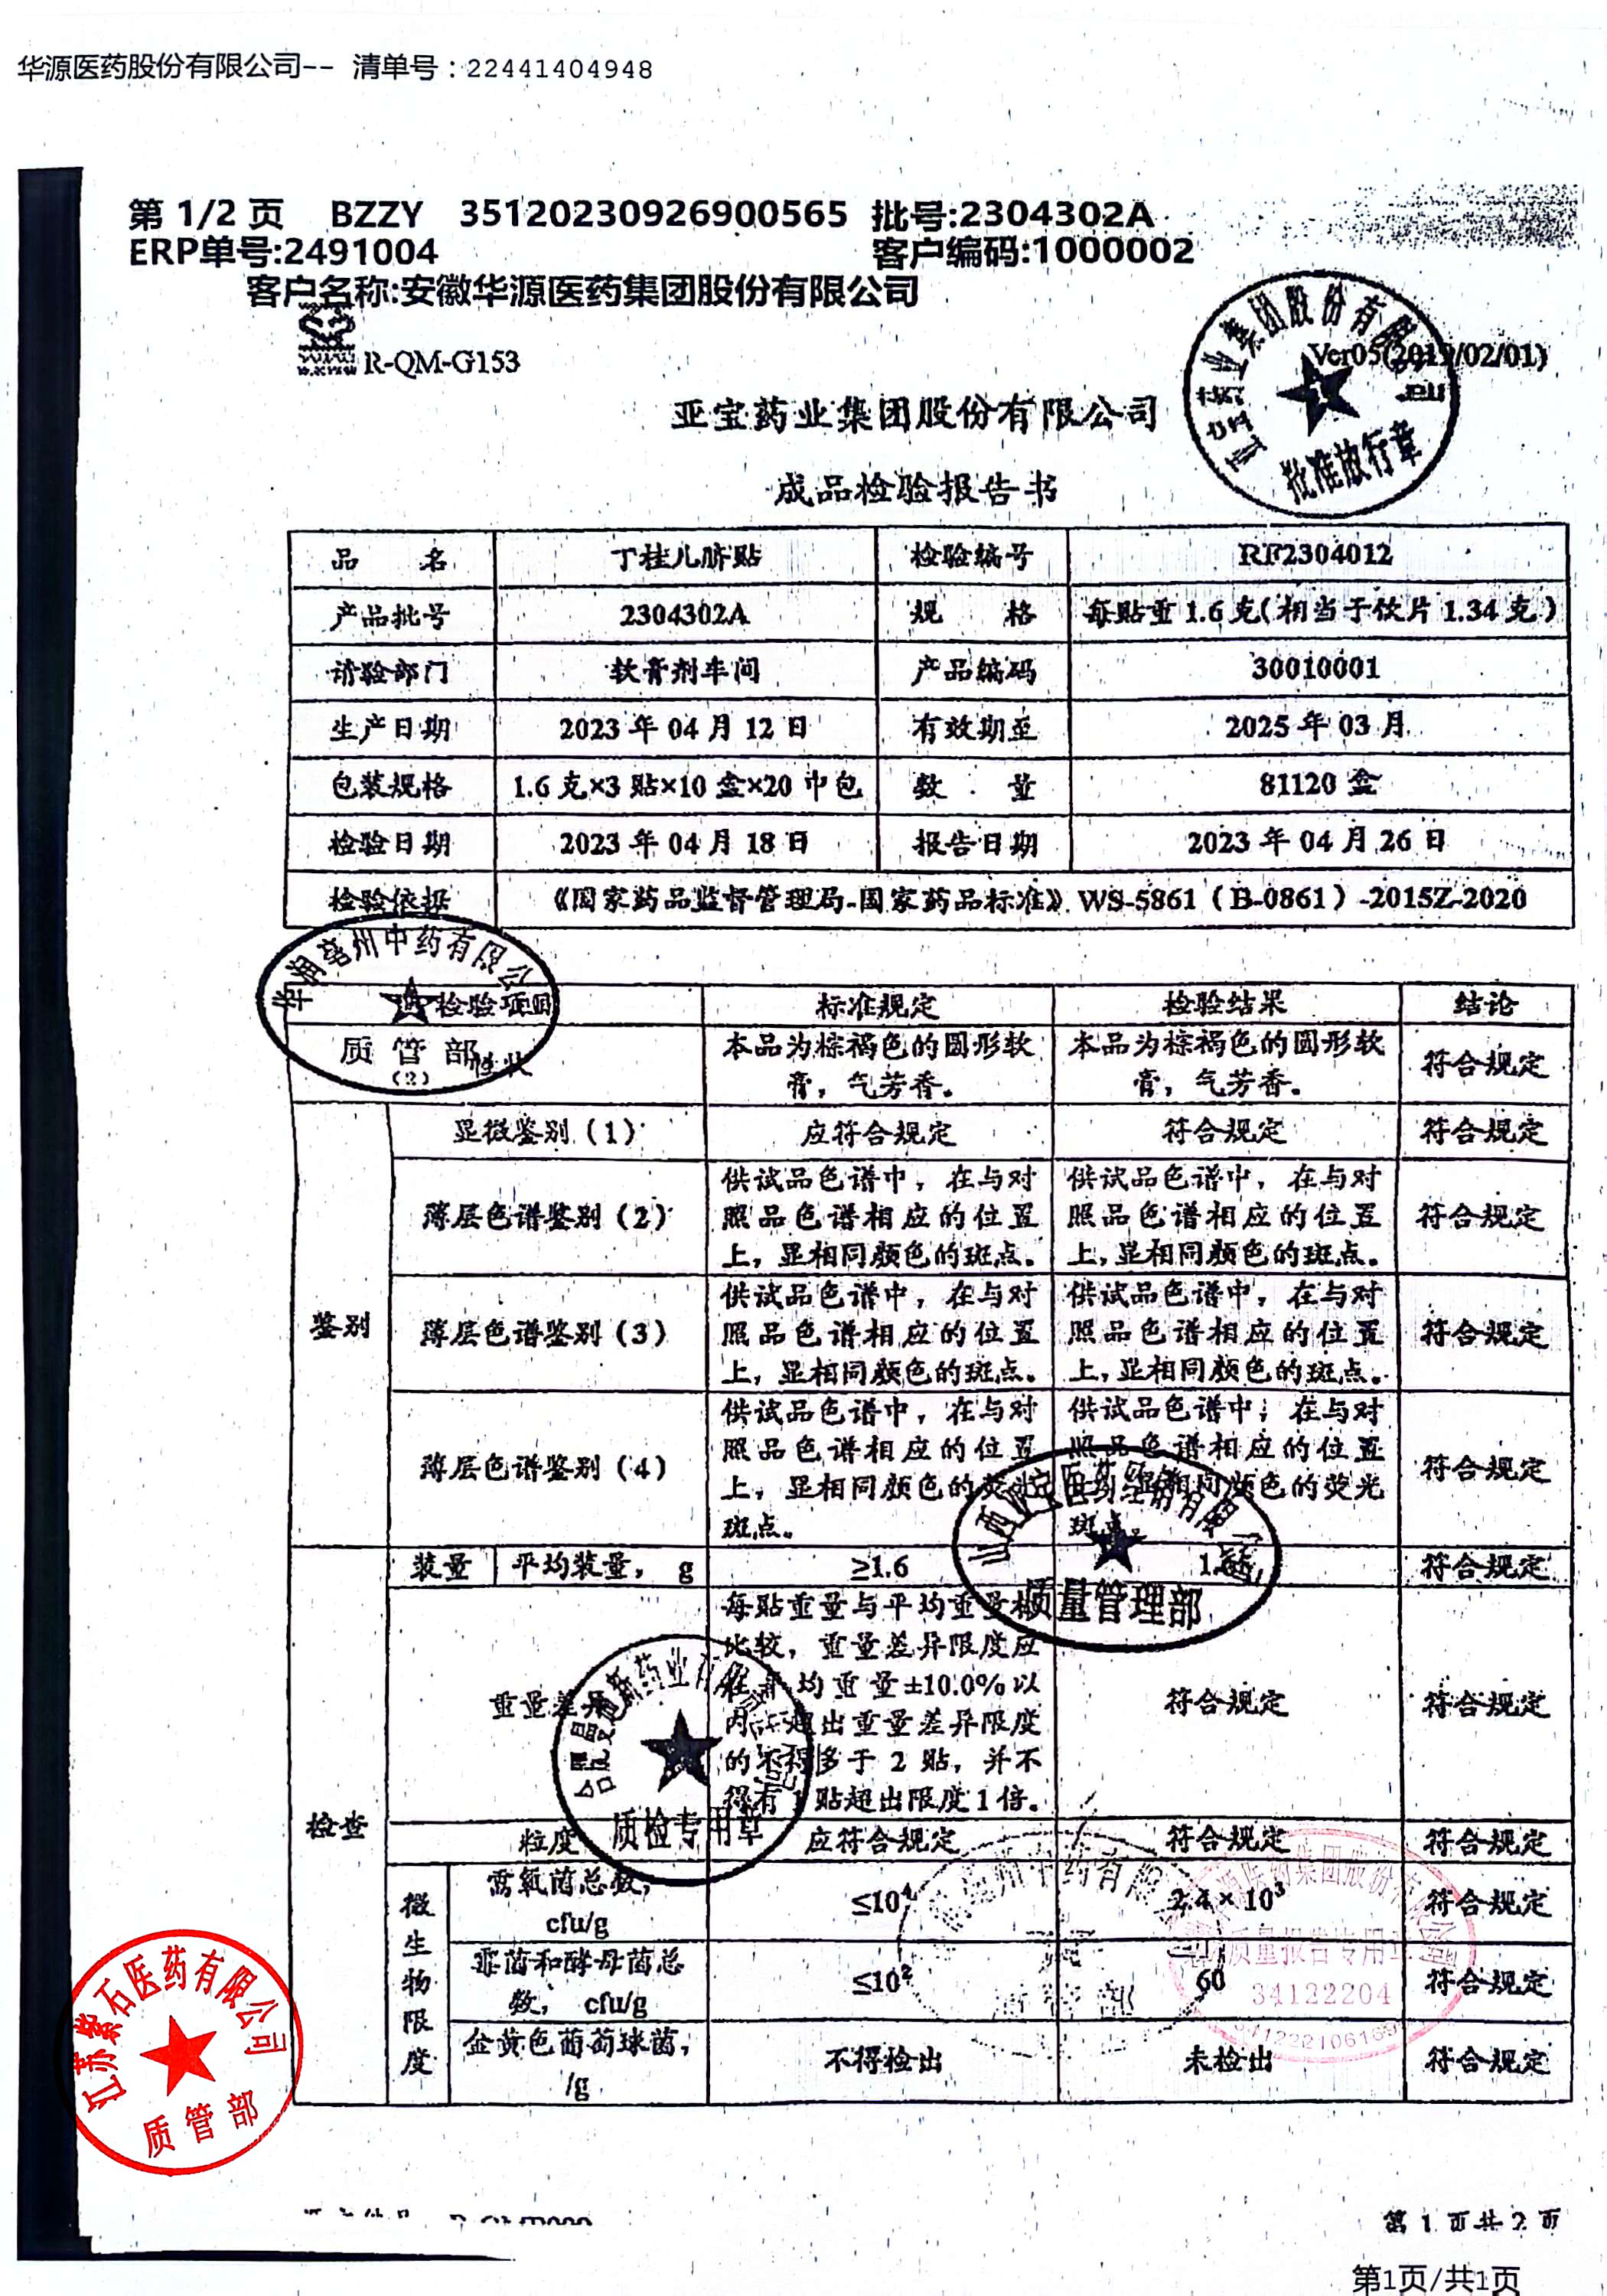 华源医药股份有限公司-- 清单号：22441404948
第 1/2 页 BZZY 35120230926900565 批号:2304302A
ERP单号:2491004 客户编码:1000002
客户名称:安徽华源医药集团股份有限公司
R-QM-G153 Ver05(2019/02/01)
亚宝药业集团股份有限公司
批准放行章
成品检验报告书
品 名 丁桂儿脐贴 检验编号 RF2304012
产品批号 2304302A 规 格 每贴重 1.6 克(相当于饮片 1.34 克)
请验部门 软膏剂车间 产品编码 30010001
生产日期 2023 年 04 月 12 日 有效期至 2025 年 03 月
包装规格 1.6 克×3 贴×10 盒×20 中包 数 量 81120 盒
检验日期 2023 年 04 月 18 日 报告日期 2023 年 04 月 26 日
检验依据 《国家药品监督管理局-国家药品标准》WS-5861（B-0861）-2015Z-2020
华润亳州中药有限公
质管部
(2)
检验项目 标准规定 检验结果 结论
性状 本品为棕褐色的圆形软 本品为棕褐色的圆形软 符合规定
膏，气芳香。 膏，气芳香。
鉴别
显微鉴别（1） 应符合规定 符合规定 符合规定
供试品色谱中，在与对 供试品色谱中，在与对
薄层色谱鉴别（2） 照品色谱相应的位置 照品色谱相应的位置 符合规定
上，显相同颜色的斑点。 上，显相同颜色的斑点。
供试品色谱中，在与对 供试品色谱中，在与对
薄层色谱鉴别（3） 照品色谱相应的位置 照品色谱相应的位置 符合规定
上，显相同颜色的斑点。 上，显相同颜色的斑点。
供试品色谱中，在与对 供试品色谱中，在与对
薄层色谱鉴别（4） 照品色谱相应的位置 照品色谱相应的位置 符合规定
上，显相同颜色的荧光 显相同颜色的荧光
斑点。 斑
山西亚宝医药经销有限
质量管理部
检查
装量 平均装量， g ≥1.6 符合规定
每贴重量与平均重量相
比较，重量差异限度应
重量差异 均重量±10.0%以 符合规定 符合规定
内 超出重量差异限度
的不得多于 2 贴，并不
得有 1 贴超出限度 1 倍。
药业有限
质检专用章
粒度 应符合规定 符合规定 符合规定
微生物限度
需氧菌总数， ≤10⁴ 2.4×10³ 符合规定
cfu/g
霉菌和酵母菌总 ≤10² 60 符合规定
数， cfu/g
金黄色葡萄球菌， 不得检出 未检出 符合规定
/g
州中药有限
医药集团股份有限公
质量报告专用章
34122204
江苏紫石医药有限公司
质管部
第 1 页共 2 页
第1页/共1页